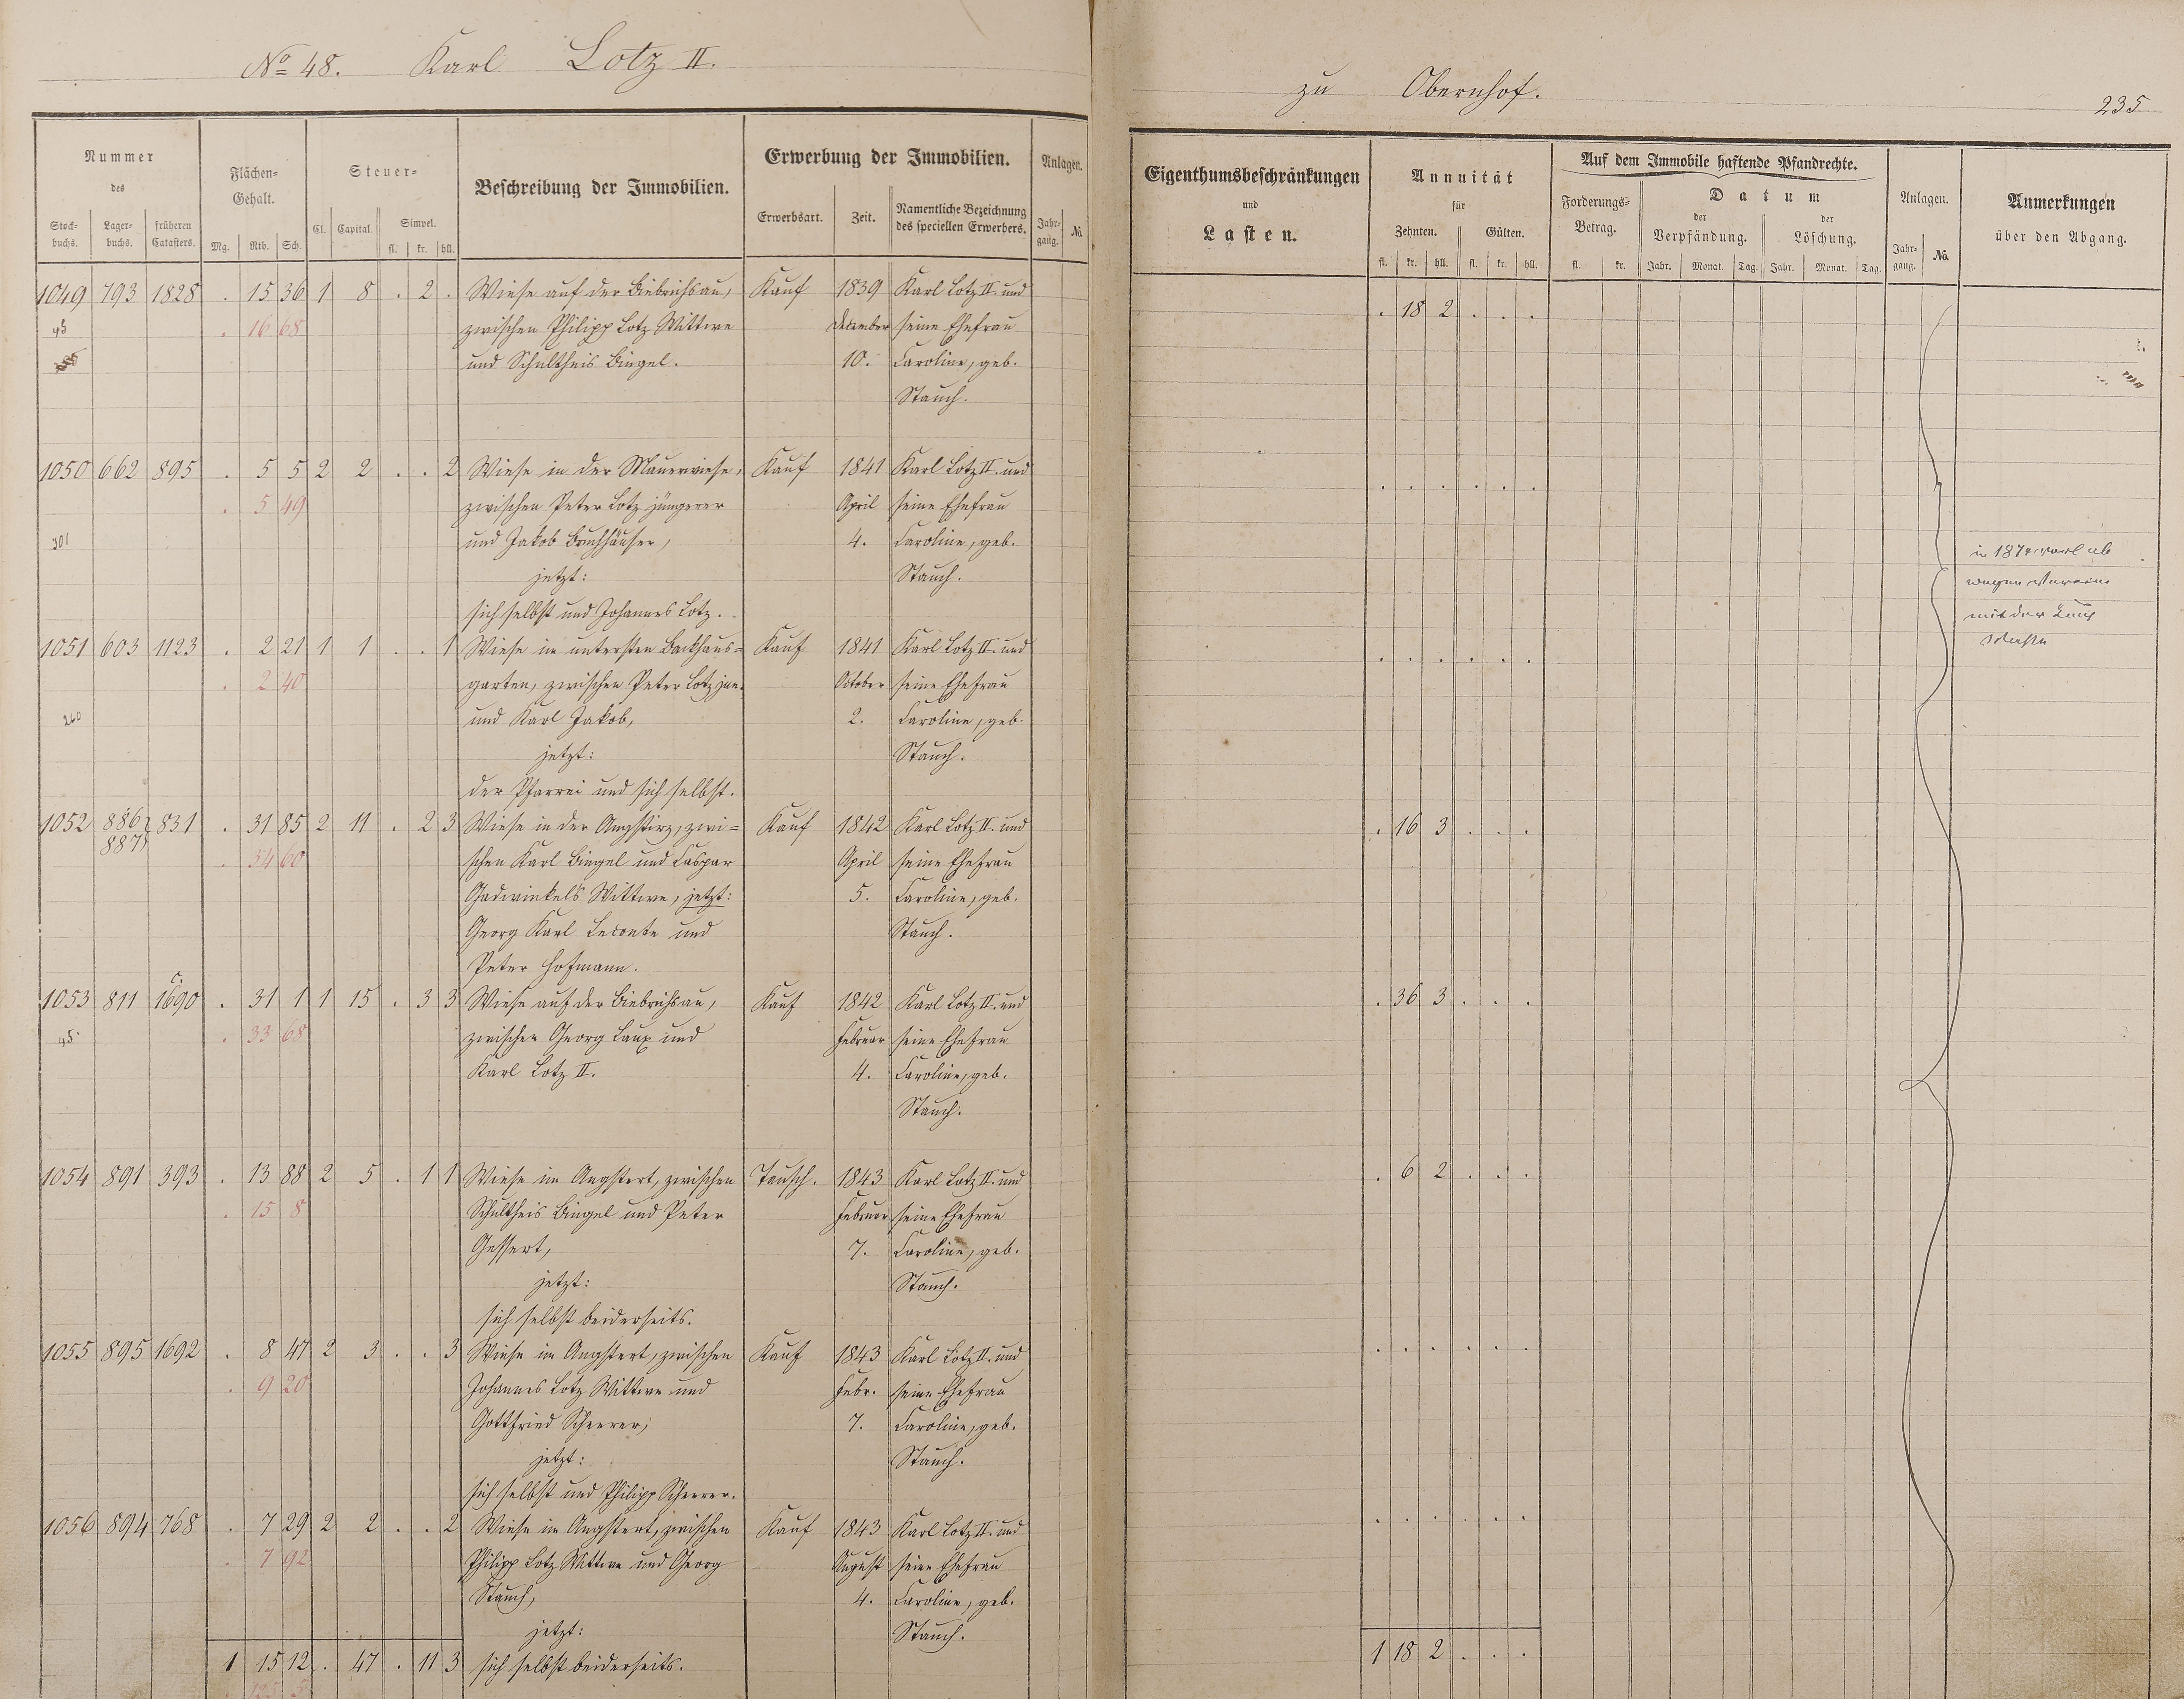 No 48. Karl Lotz II.
zu Obernhof.
235
Nummer
des
Stock-
buchs.
Lager-
buchs.
früheren
Catasters.
Flächen-
Gehalt.
Mg. Rth. Sch.
Steuer-
Cl. Capital. Simpel.
fl. kr. hll.
Beschreibung der Immobilien.
Erwerbung der Immobilien.
Erwerbsart. Zeit. Namentliche Bezeichnung
des speciellen Erwerbers.
Anlagen.
Jahr-
gang. No.
Eigenthumsbeschränkungen
und
Lasten.
Annuität
für
Zehnten. Gülten.
fl. kr. hll. fl. kr. hll.
Auf dem Immobile haftende Pfandrechte.
Forderungs-
Betrag.
fl. kr.
Datum
der
Verpfändung.
der
Löschung.
Jahr. Monat. Tag. Jahr. Monat. Tag.
Anlagen.
Jahr-
gang. No.
Anmerkungen
über den Abgang.
1049 793 1828 . 15 36 1 8 . 2 . Wiese auf der Biebrichsau, Kauf 1839 Karl Lotz II. und . 18 2 . . .
. 16 68 zwischen Philipp Lotz Wittwe December seine Ehefrau
und Schultheis Bingel. 10. Caroline, geb.
Stauch.
1050 662 895 . 5 5 2 2 . . 2 Wiese in der Mauerwiese, Kauf 1841 Karl Lotz II. und . . . . . .
. 5 49 zwischen Peter Lotz jüngerer April seine Ehefrau
301 und Jakob Bruchhäuser, 4. Caroline, geb.
jetzt: Stauch.
sich selbst und Johannes Lotz.
mit der
1051 603 1123 . 2 21 1 1 . . 1 Wiese im untersten Backhaus= Kauf 1841 Karl Lotz II. und . . . . . .
. 2 40 garten, zwischen Peter Lotz jun. October seine Ehefrau
260 und Karl Jakob, 2. Caroline, geb.
jetzt: Stauch.
der Pfarrei und sich selbst.
1052 886 831 . 31 85 2 11 . 2 3 Wiese in der Angstirz, zwi= Kauf 1842 Karl Lotz II. und . 16 3 . . .
887 . 34 60 schen Karl Bingel und Caspar April seine Ehefrau
Gadwinkels Wittwe, jetzt: 5. Caroline, geb.
Georg Karl Leconte und Stauch.
Peter Hofmann.
1053 811 1690 . 31 1 1 15 . 3 3 Wiese auf der Biebrichsau, Kauf 1842 Karl Lotz II. und . 36 3 . . .
. 33 68 zwischen Georg Laux und Februar seine Ehefrau
Karl Lotz II. 4. Caroline, geb.
Stauch.
1054 891 393 . 13 88 2 5 . 1 1 Wiese im Angstert, zwischen Tausch. 1843 Karl Lotz II. und . 6 2 . . .
. 15 8 Schultheis Bingel und Peter Februar seine Ehefrau
Gessert, 7. Caroline, geb.
jetzt: Stauch.
sich selbst beiderseits.
1055 895 1692 . 8 47 2 3 . . 3 Wiese im Angstert, zwischen Kauf 1843 Karl Lotz II. und . . . . . .
. 9 20 Johannes Lotz Wittwe und Febr. seine Ehefrau
Gottfried Scheerer; 7. Caroline, geb.
jetzt: Stauch.
sich selbst und Philipp Scheerer.
1056 894 768 . 7 29 2 2 . . 2 Wiese im Angstert, zwischen Kauf 1843 Karl Lotz II. und . . . . . .
. 7 92 Philipp Lotz Wittwe und Georg August seine Ehefrau
Stauch, 4. Caroline, geb.
jetzt: Stauch.
1 15 12 . 47 . 11 3 sich selbst beiderseits. 1 18 2 . . .